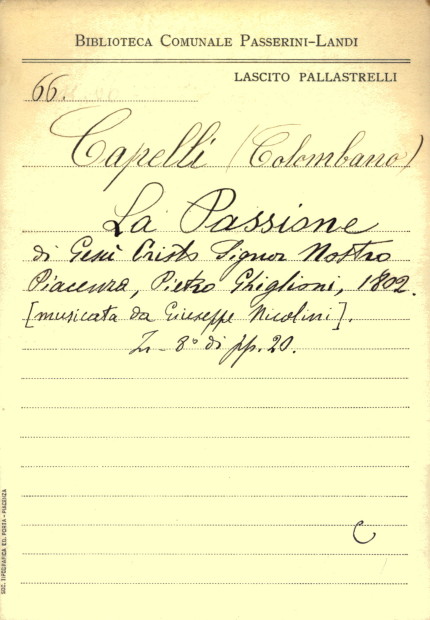 BIBLIOTECA COMUNALE PASSERINI-LANDI
LASCITO PALLASTRELLI
66.
Capelli (Colombano)
La Passione
di Gesù Cristo Signor Nostro
Piacenza, Pietro Ghiglioni, 1802.
[musicata da Giuseppe Nicolini].
In-8° di pp. 20.
C
SOC. TIPOGRAFICA ED. PORTA - PIACENZA